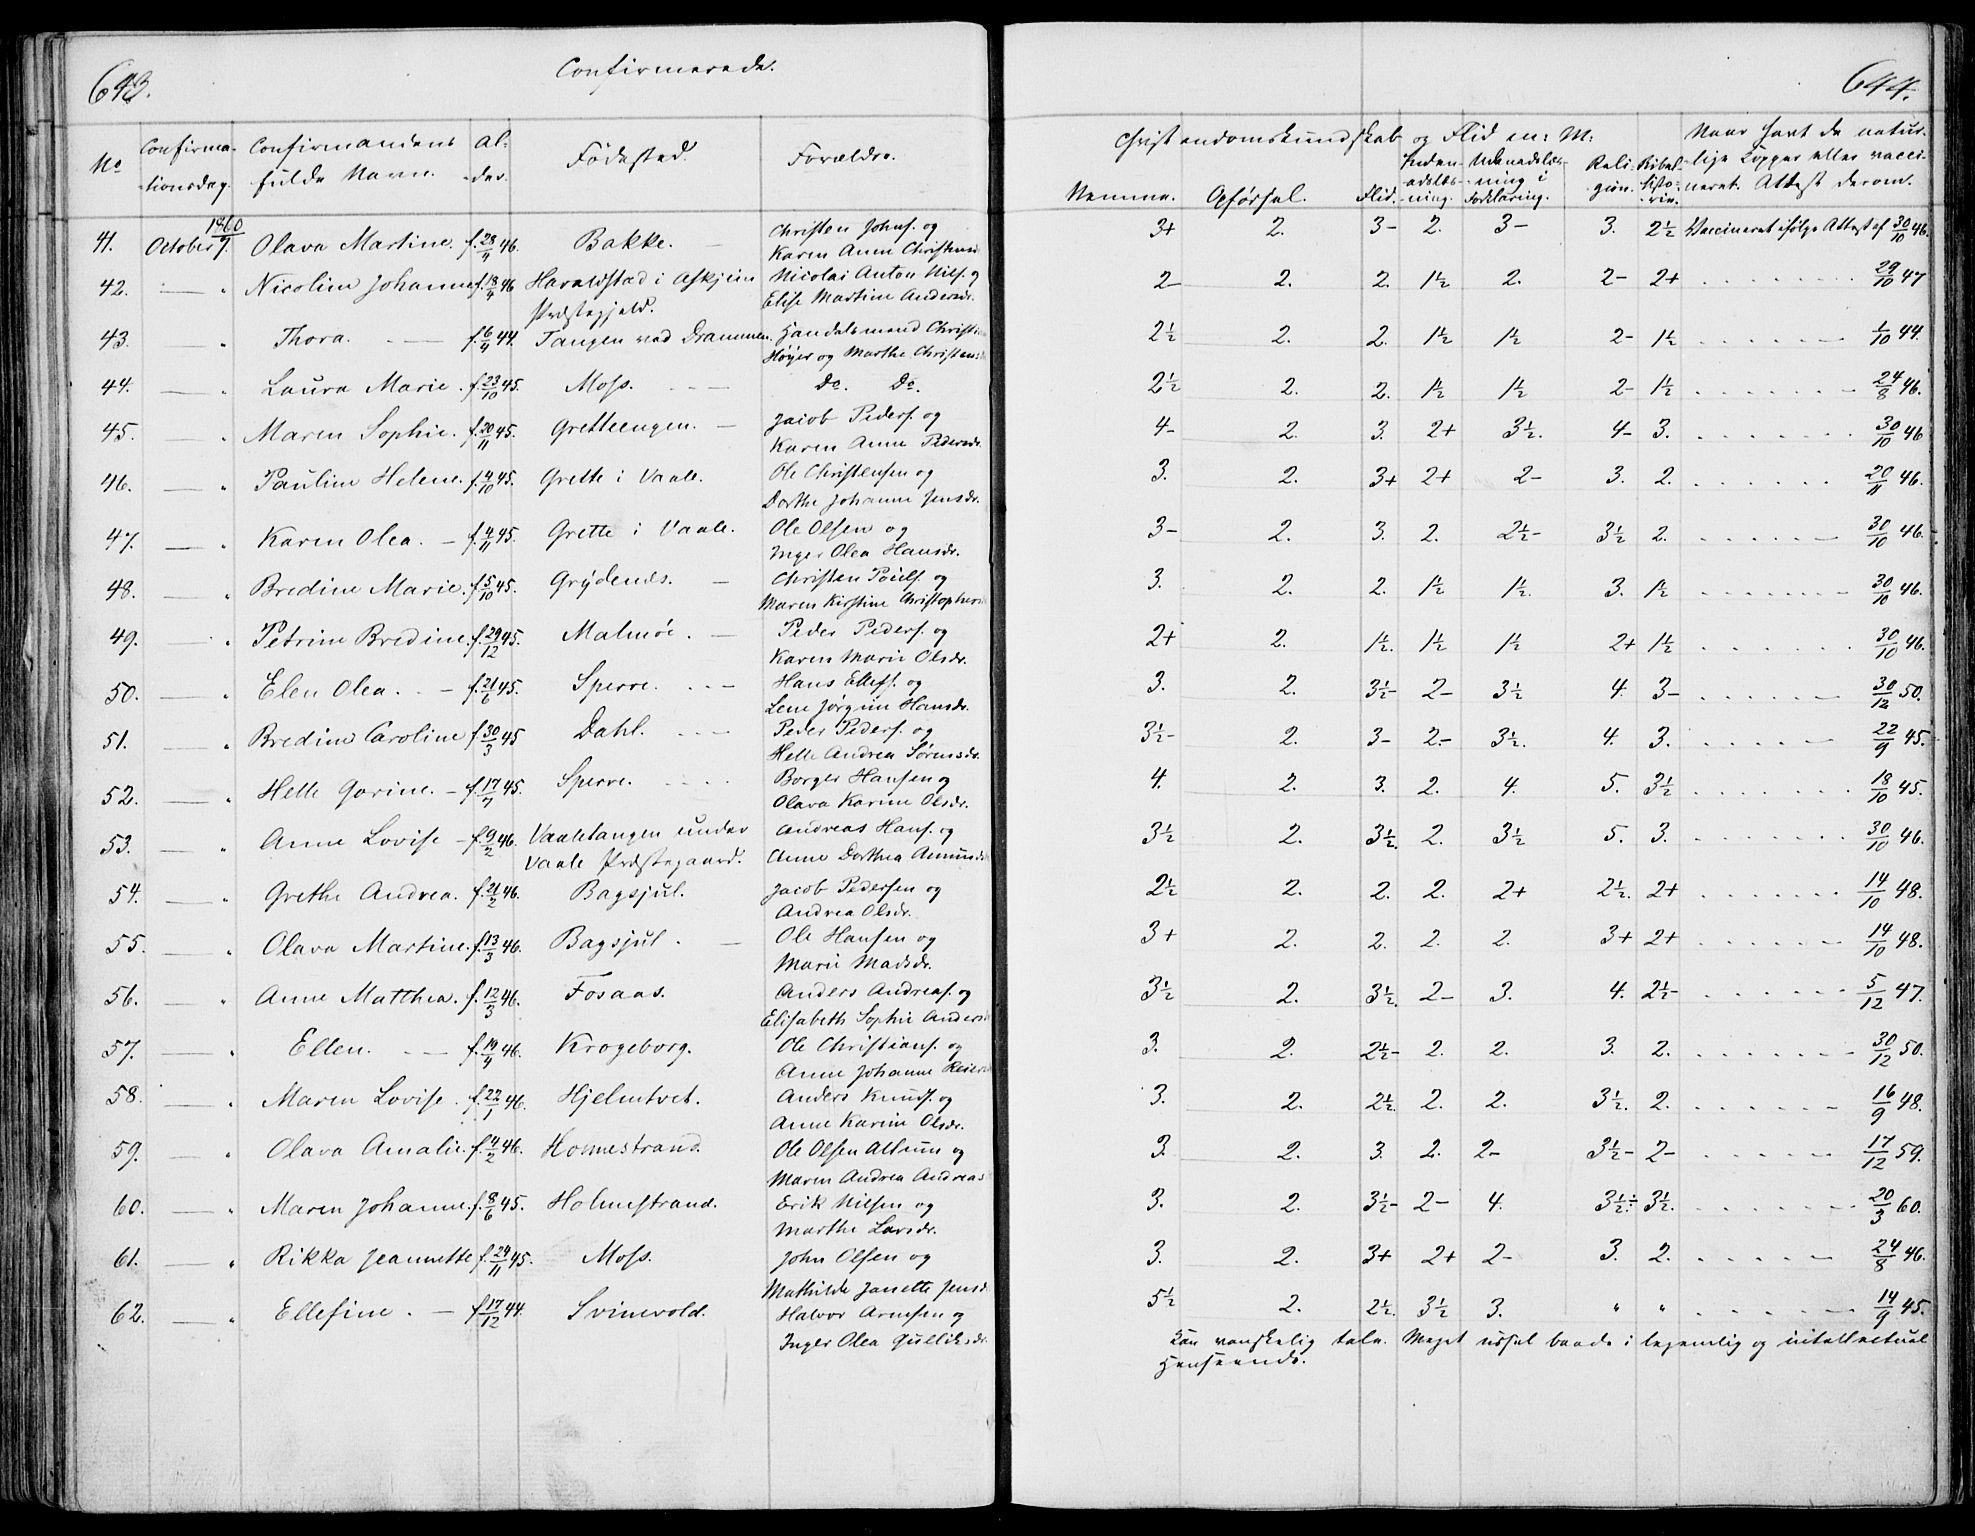 643.
Confirmerede.
644.
No
Confirma-
tionsdag.
Confirmandens
fulde Navn.
Al-
der.
Fødested.
Forældre.
Christendomskundskab og Flid m: M:
Nemme.
Opførsel.
Flid.
Inden-
adslæs-
ning.
Udenadslæs-
ning i
Forklaring.
Reli-
gion.
Bibel-
histo-
rie.
Naar havt de natur-
lige Kopper eller vacci-
neret. Attest derom.
1860
41. October 7. Olava Martine. f. 28/4 46. Bakke. Christen Johns. og 3+ 2. 3- 2. 3- 3. 2½ Vaccineret ifølge Attest af 30/10 46.
Karen Anne Christensd
42. — " Nicoline Johanne f. 18/4 46 Haraldstad i Askjeim Nicolai Anton Nils. og 2- 2. 2. 1½ 2. 2- 2+ 29/10 47
Præstegjeld. Elise Martine Andersdr.
43. — " Thora. f. 6/4 44. Tangen ved Drammen. Handelsmand Christian 2½ 2. 2. 1½ 1½ 2- 1½ 1/10 44.
Høyer og Marthe Christensd
44. — " Laura Marie. f. 23/10 45. Moss. Do. Do. 2½ 2. 2. 1½ 1½ 2- 1½ 24/8 46.
45. — " Maren Sophie. f. 20/11 45. Gretteengen. Jacob Peders. og 4- 2. 3. 2+ 3½. 4- 3. 30/10 46
Karen Anne Pedersdr.
46. — " Pauline Helene. f. 4/10 45. Grette i Vaale. Ole Christensen og 3. 2. 3+ 2+ 2- 3. 2. 20/11 46.
Dorthe Johanne Jensdr.
47. — " Karen Olea. f. 4/11 45. Grette i Vaale. Ole Olsen og 3- 2. 3. 2. 2½- 3½ 2. 30/10 46.
Inger Olea Hansdr.
48. — " Bredine Marie. f. 5/10 45. Grydenes. Christen Pouls. og 3. 2. 2. 1½ 1½. 3. 1½ 30/10 46.
Maren Kirstine Christophersd
49. " Petrine Bredine. f. 29/12 45. Malmøe. Peder Peders. og 2+ 2. 1½. 1½ 1½ 2+ 1½ 30/10 46.
Karen Marie Olsdr.
50. — " Elen Olea. f. 21/6 45. Sperre. Hans Ellefs. og 3. 2. 3½- 2- 3½ 4. 3- 30/12 50.
Lene Jørgine Hansdr.
51. — " Bredine Caroline f. 30/3 45 Dahl. Peder Peders. og 3½- 2. 3- 2- 3½. 4. 3. 22/9 45.
Helle Andrea Sørensdr.
52. — " Helle Gorine. f. 17/7 45. Sperre. Borger Hansen og 4. 2. 3. 2. 4. 5. 3½ 18/10 45.
Olava Karine Olsdr.
53. — " Anne Lovise f. 9/2 46. Vaaletangen under Andreas Hans. og 3½ 2. 3½. 2. 3½ 5. 3. 30/10 46.
Vaale Præstegaard. Anne Dorthea Amundsd
54. — " Grethe Andrea. f. 21/2 46. Bagsjul. Jacob Pedersen og 2½ 2. 2. 2. 2+ 2½. 2+ 14/10 48.
Andrea Olsdr.
55. — " Olava Martine. f. 13/3 46. Bagsjul. Ole Hansen og 3+ 2. 2. 2. 2. 3+ 2+ 14/10 48.
Marie Madsdr.
56. — " Anne Matthea. f. 12/3 46. Fosaas. Anders Andreas. og 3½ 2. 3½. 2- 3. 4. 2½- 5/12 47.
Elisabeth Sophie Anders
57. — " Ellen. f. 19/4 46. Krogeborg. Ole Christians. og 3. 2. 2½- 2. 2. 3. 2. 30/12 50.
Anne Johanne Reiers
58. — " Maren Lovise. f. 22/1 46. Hjelmtvet. Anders Knuds. og 3. 2. 2½. 2. 2. 3½. 2. 16/9 48.
Anne Karine Olsdr.
59. — " Olava Amalie. f. 4/2 46. Holmestrand. Ole Olsen Altum og 3. 2. 3. 2. 2- 3½- 2- 17/12 59.
Maren Andrea Andreas
60. — " Maren Johanne. f. 8/6 45. Holmestrand. Erik Nilsen og 3. 2. 3½- 2- 4. 3½÷ 3½. 20/3 60.
Marthe Larsdr.
61. — " Rikka Jeannette f. 24/11 45. Moss. John Olsen og 3. 2. 3+ 2+ 2- 3. 2. 24/8 46.
Mathilde Janette Jensd
62. — " Ellefine. f. 17/12 44. Svinevold. Halvor Arnesen og 5½ 2. 2½. 3½ 3. " " 14/9 45.
Inger Olea Gulliksdr.
Kan vanskelig tale. Meget ussel baade i legemlig og intellectuel
Henseende.